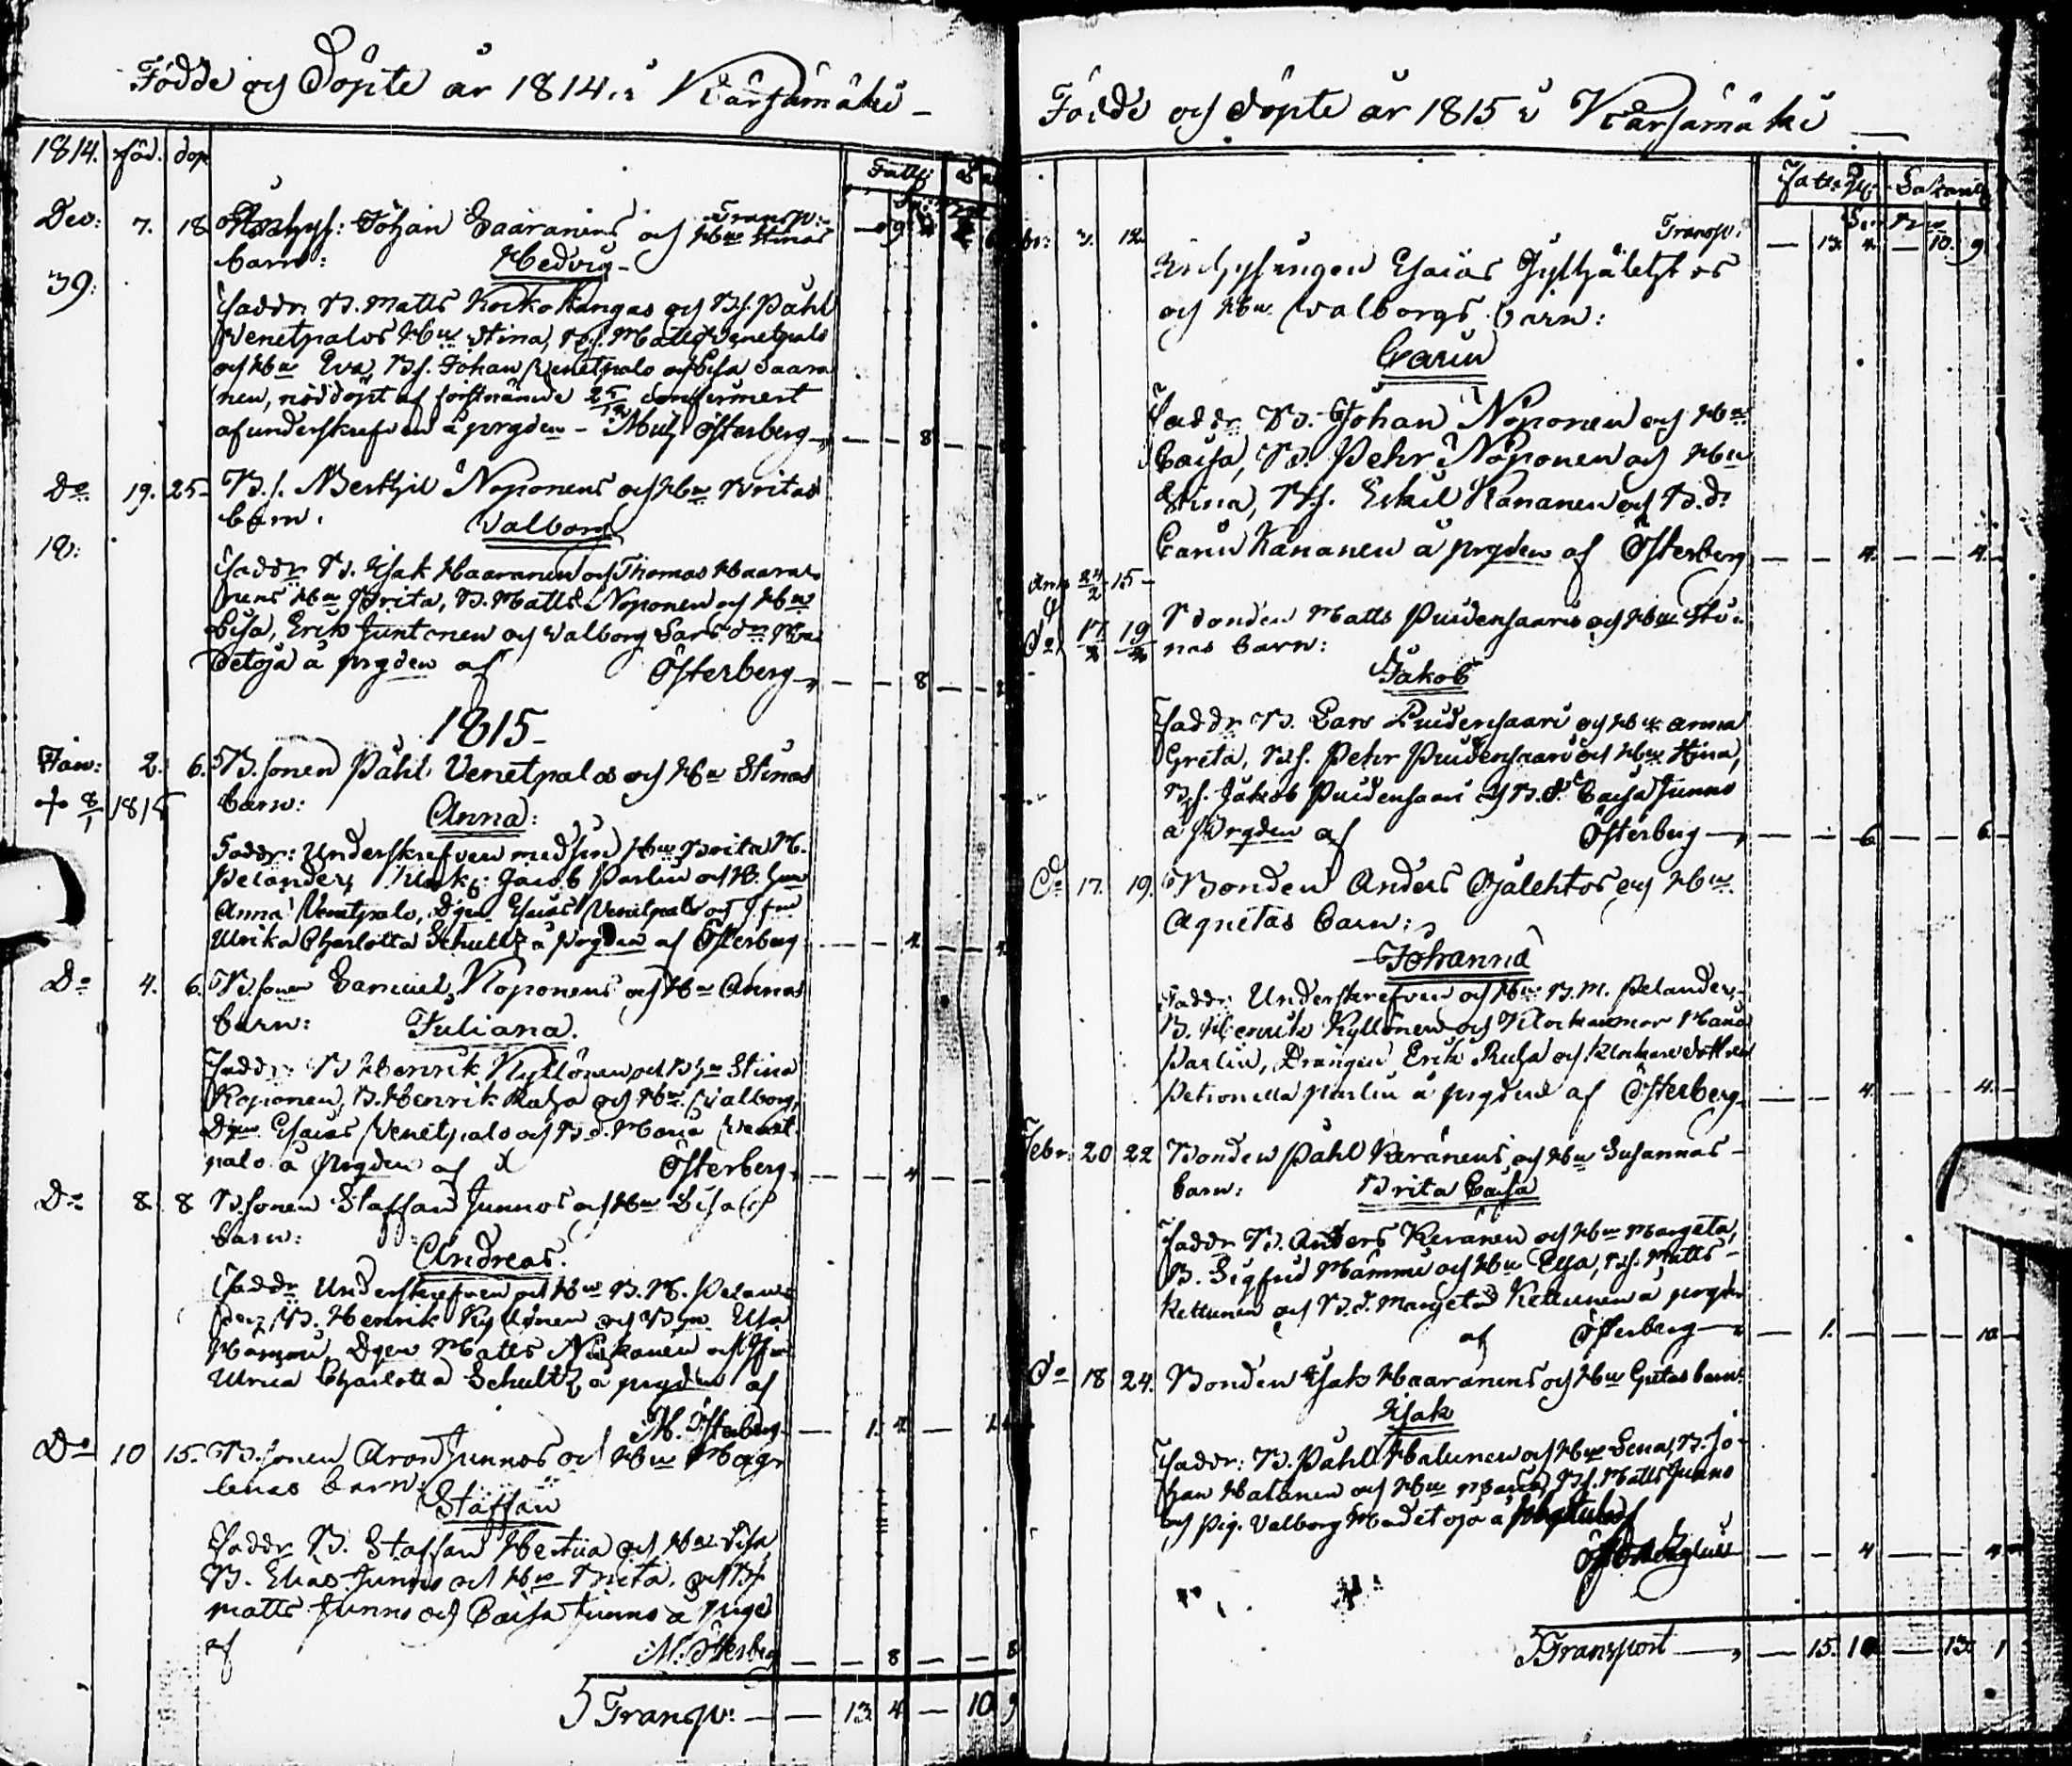 Födde och Döpte år 1814 i Kärsämäki
1814. föd. döp
Fattig
Transp:
Dec: 7. 18 Inhys: Johan Saaranens och Hu Stinas
barn: Hedvig
39: Faddr. B. Matts Korkokangas och Bs. Påhl
Venetpalos Hu Stina, Bs. Matts Venetpalo
och Hu Eva, Bs. Johan Venetpalo och Lisa Saara
nen, nöddöpt af förstnämde 25/12 confirmert
af underskrefven å prgden - Österberg 8
Do 19. 25 B.s. Berthil Noponens och Hu Britas
barn: Valborg
Faddr B. Isak Haaranen och Thomas Haara
nens Hu Brita, B. Matts Noponen och Hu
Lisa, Erik Juntunen och Valborg Lars dr Ma
detoja å prgden af Österberg 8
1815
Jan: 2. 6. B.sonen Påhl Venetpalos och Hu Stinas
+ 8/1 1815 barn: Anna:
Faddr: Underskrefven med sin Hu Brita M.
Pelander, Klock: Jacob Parlin och
Anna Venetpalo, Dgen Esaias Venetpalo och Jfru
Ulrika Charlotta Schultz å prgden af Österberg 4
Do 4. 6. B.sonen Samuel Koponens och Hu Annas
barn: Juliana.
Faddr: B Henrik Kyllönen och Stina
Koponen, B. Henrik Ruha och Hu Valborg,
Dgen Esaias Venetpalo och B.d. Maria Venet
palo å prgden af Österberg 4
Do 8. 8 B.sonen Staffan Junnos och Hu Lisas
barn: Andreas.
Faddr Underskrefven och Hu B. M. Pelan
der, B. Henrik Kyllönen och Elsa
Dgen Matts Niskanen och Jfru
Ulrica Charlotta Schultz å prgden af
M. Österberg 1. 4
Do 10 15. B.sonen Aron Junnos och Hu Magda
lenas barn: Staffan
Faddr B. Staffan och Hu Lisa
B. Elias Junno och Hu Brita, och Bs
Matts Junno och Caisa Junno å prgd
af M. Österberg 8 8
Transp: 13. 4 10 9
Födde och Döpte år 1815 i Kärsämäki
Transp: 13. 4. 10. 9
3. 12. Inhysingen Esaias
och Hu Valborgs barn:
Carin
Faddr B. Johan Noponen och Hu
Caisa, B. Pehr Noponen och Hu
Stina, Bs. Eskil Känanen och B.d.
Carin Känanen å prgden af Österberg 4. 4.
24/2 15
Do 17/2 19/2 Bonden Matts Puidensaaris och Hu Sti
nas barn:
Jakob
Faddr B. Lars Puidensaari och Hu Anna
Greta, Bs. Pehr Puidensaari och Hu Stina,
Bs. Jakob Puidensaari och B.d. Caisa Junno
å Prgden af Österberg 6 6
Do 17. 19. Bonden Anders Ojalehtos och Hu
Agnetas barn:
Johanna
Faddr Underskrefven och Hu B. M. Pelander,
B. Henrik Kyllönen och Klockarmor Maria
Parlin, Drängen Erik Ruha och Klockaredottren
Petronella Parlin å prgden af Österberg 4. 4.
Febr: 20 22 Bonden Påhl Keränens och Hu Susannas
barn: Brita Caisa
Faddr B. Anders Keränen och Hu Margeta,
B. Sigfrid Mämmi och Hu Elsa, Bs. Matts
Kettunen och B.d. Margeta Kettunen å prgden
af Österberg 1. 10
Do 18 24. Bonden Isak Haaranens och Hu Gretas barn:
Isak
Faddr: B. Påhl Halunen och Hu Lena, B. Jo
han Halunen och Hu Maria, Bs. Matts Junno
och Pig. Valborg Madetoja å
4 4
Transport 15. 10 13. 1